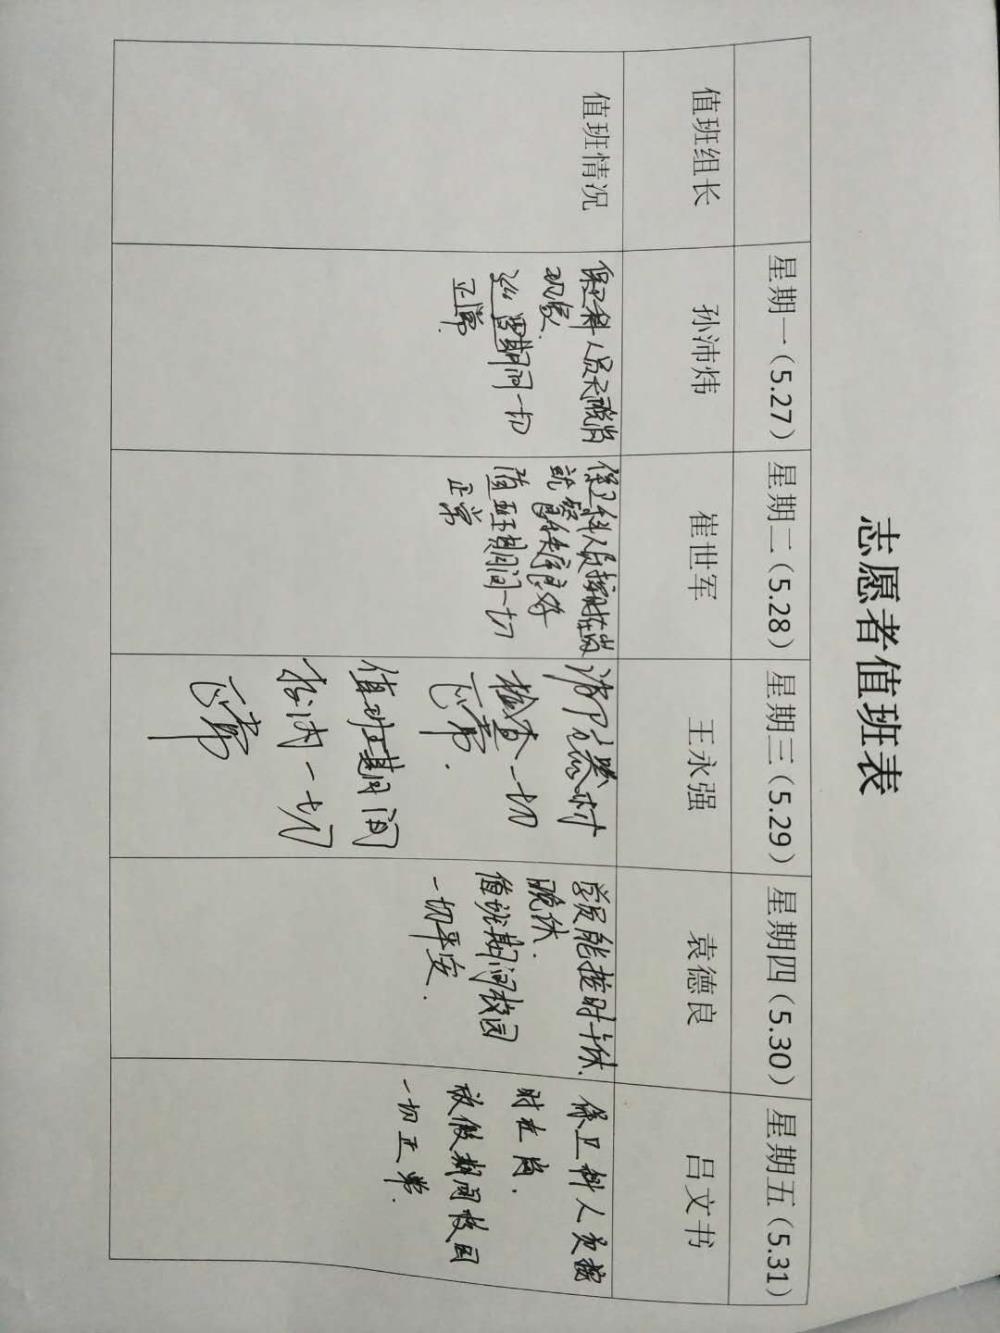 志愿者值班表
星期一(5.27)
星期二(5.28)
星期三(5.29)
星期四(5.30)
星期五(5.31)
值班组长
孙沛炜
崔世军
王永强
袁德良
吕文书
值班情况
保卫科人员无脱岗
现象.
巡逻期间一切
正常.
保卫科人员按时在岗
就餐秩序良好
值班期间一切
正常
消防器材
检查一切
正常.
值班期间
校内一切
正常
学员能按时午休.
晚休.
值班期间校园
一切平安.
保卫科人员按
时在岗.
放假期间校园
一切正常.